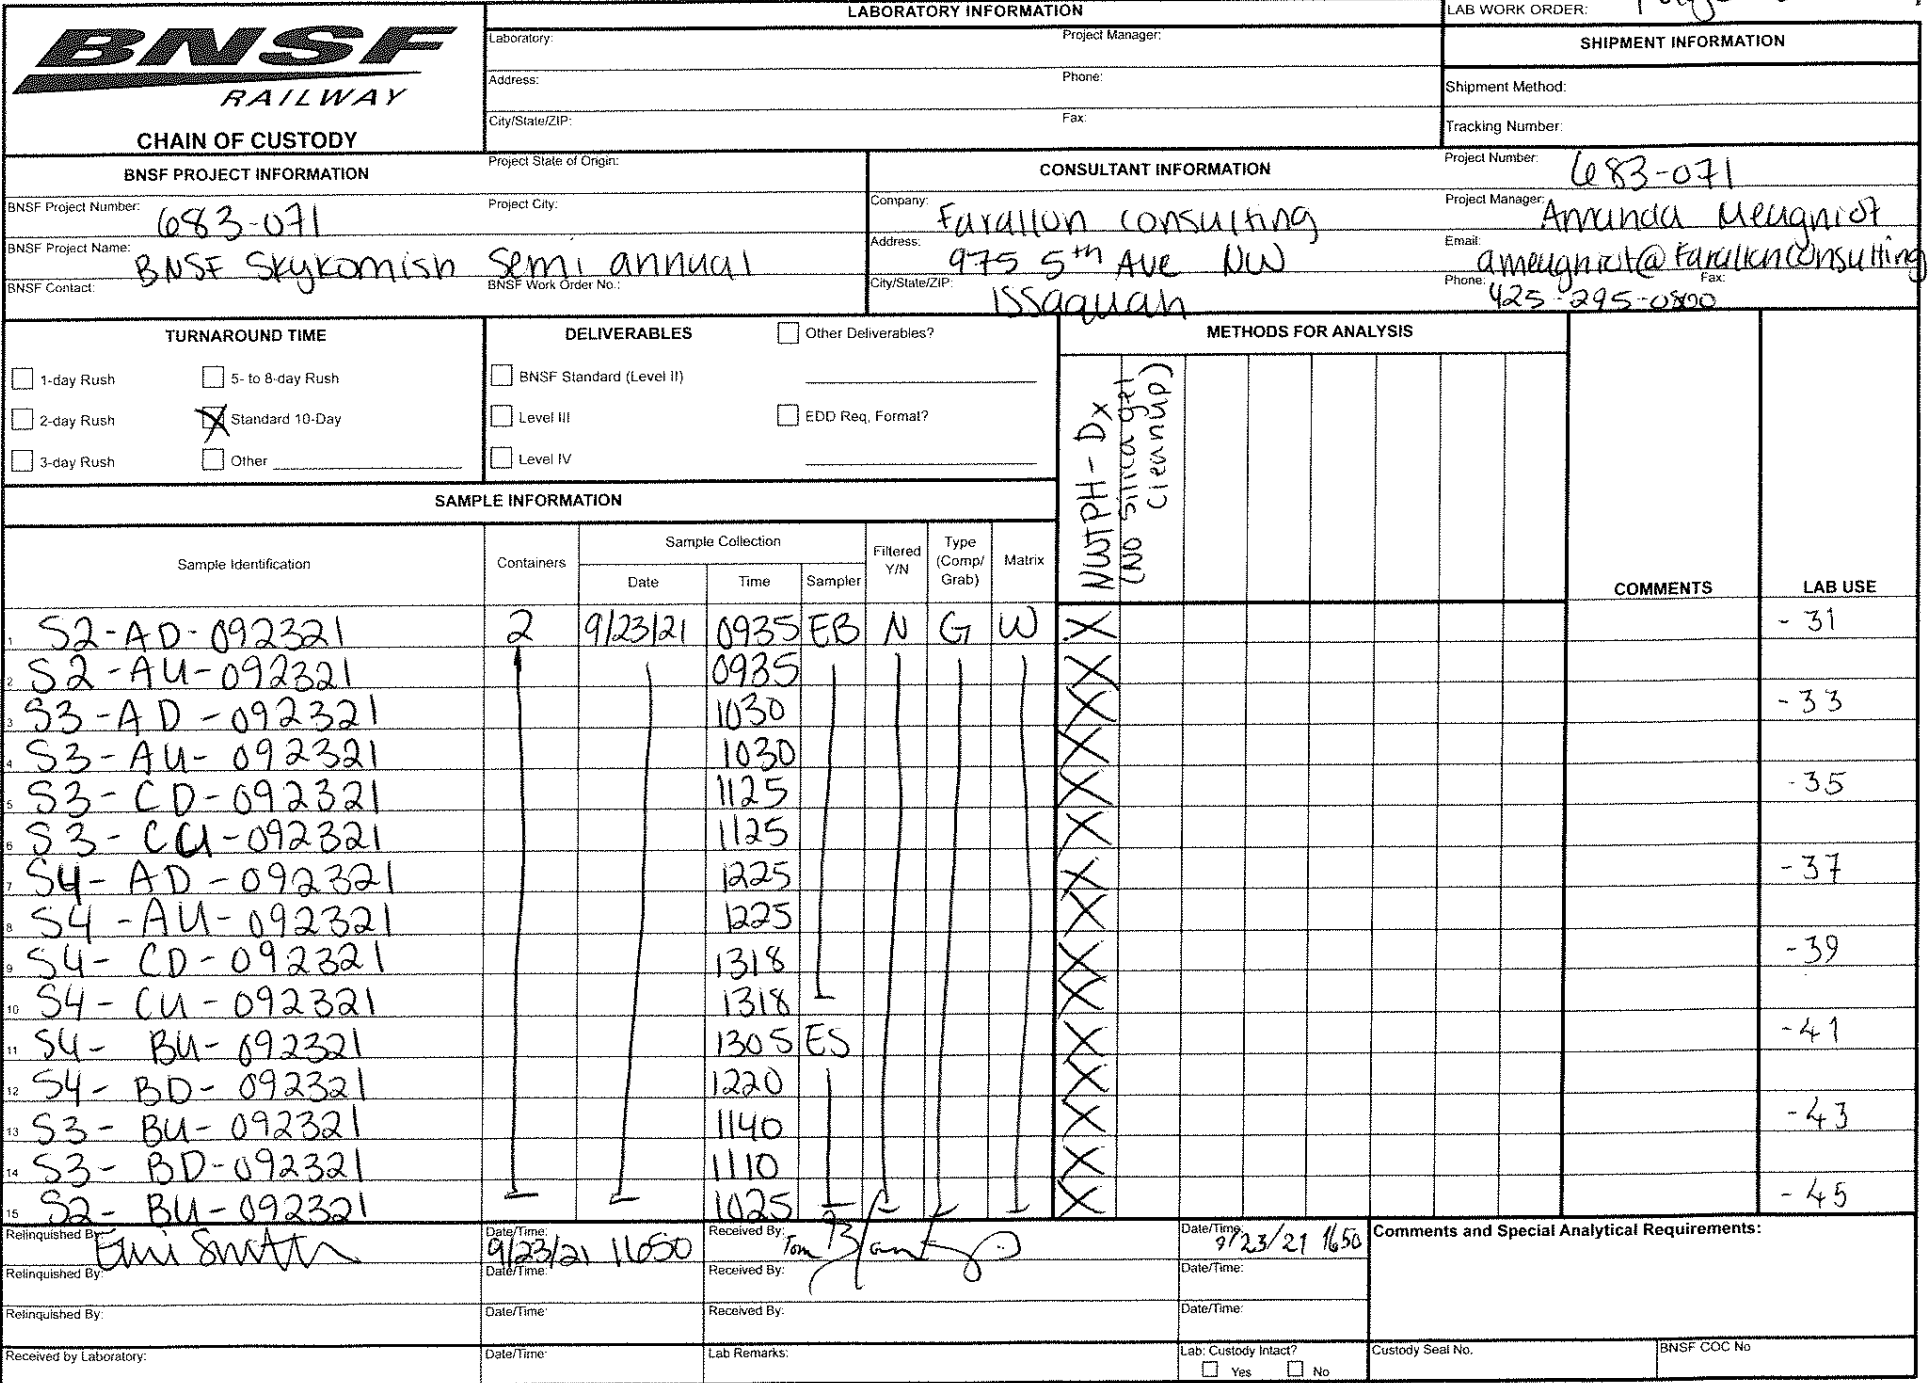 BNSF
RAILWAY
CHAIN OF CUSTODY
LABORATORY INFORMATION
Laboratory:
Project Manager:
Address:
Phone:
City/State/ZIP:
Fax:
LAB WORK ORDER:
SHIPMENT INFORMATION
Shipment Method:
Tracking Number:
BNSF PROJECT INFORMATION
Project State of Origin:
BNSF Project Number: 683-071
Project City:
BNSF Project Name: BNSF Skykomish Semi annual
BNSF Contact:
BNSF Work Order No.:
CONSULTANT INFORMATION
Project Number: 683-071
Company: Farallon Consulting
Project Manager: Amanda Meugniot
Address: 975 5th Ave NW
Email: ameugniot@farallonconsulting
City/State/ZIP: Issaquah
Phone: 425-295-0800
Fax:
TURNAROUND TIME
1-day Rush
5- to 8-day Rush
2-day Rush
X Standard 10-Day
3-day Rush
Other
DELIVERABLES
Other Deliverables?
BNSF Standard (Level II)
Level III
EDD Req, Format?
Level IV
METHODS FOR ANALYSIS
NWTPH - Dx
(NO Silica gel
Cleanup)
SAMPLE INFORMATION
Sample Identification
Containers
Sample Collection
Date
Time
Sampler
Filtered Y/N
Type (Comp/ Grab)
Matrix
COMMENTS
LAB USE
1 S2-AD-092321 2 9/23/21 0935 EB N G W X -31
2 S2-AU-092321 0935 X
3 S3-AD-092321 1030 X -33
4 S3-AU-092321 1030 X
5 S3-CD-092321 1125 X -35
6 S3-CU-092321 1125 X
7 S4-AD-092321 1225 X -37
8 S4-AU-092321 1225 X
9 S4-CD-092321 1318 X -39
10 S4-CU-092321 1318 X
11 S4-BU-092321 1305 ES X -41
12 S4-BD-092321 1220 X
13 S3-BU-092321 1140 X -43
14 S3-BD-092321 1110 X
15 S2-BU-092321 1025 X -45
Relinquished By: Emi Smith
Date/Time: 9/23/21 1650
Received By: Tom
Date/Time: 9/23/21 1650
Comments and Special Analytical Requirements:
Relinquished By:
Date/Time:
Received By:
Date/Time:
Relinquished By:
Date/Time:
Received By:
Date/Time:
Received by Laboratory:
Date/Time:
Lab Remarks:
Lab: Custody Intact?
Yes No
Custody Seal No.
BNSF COC No